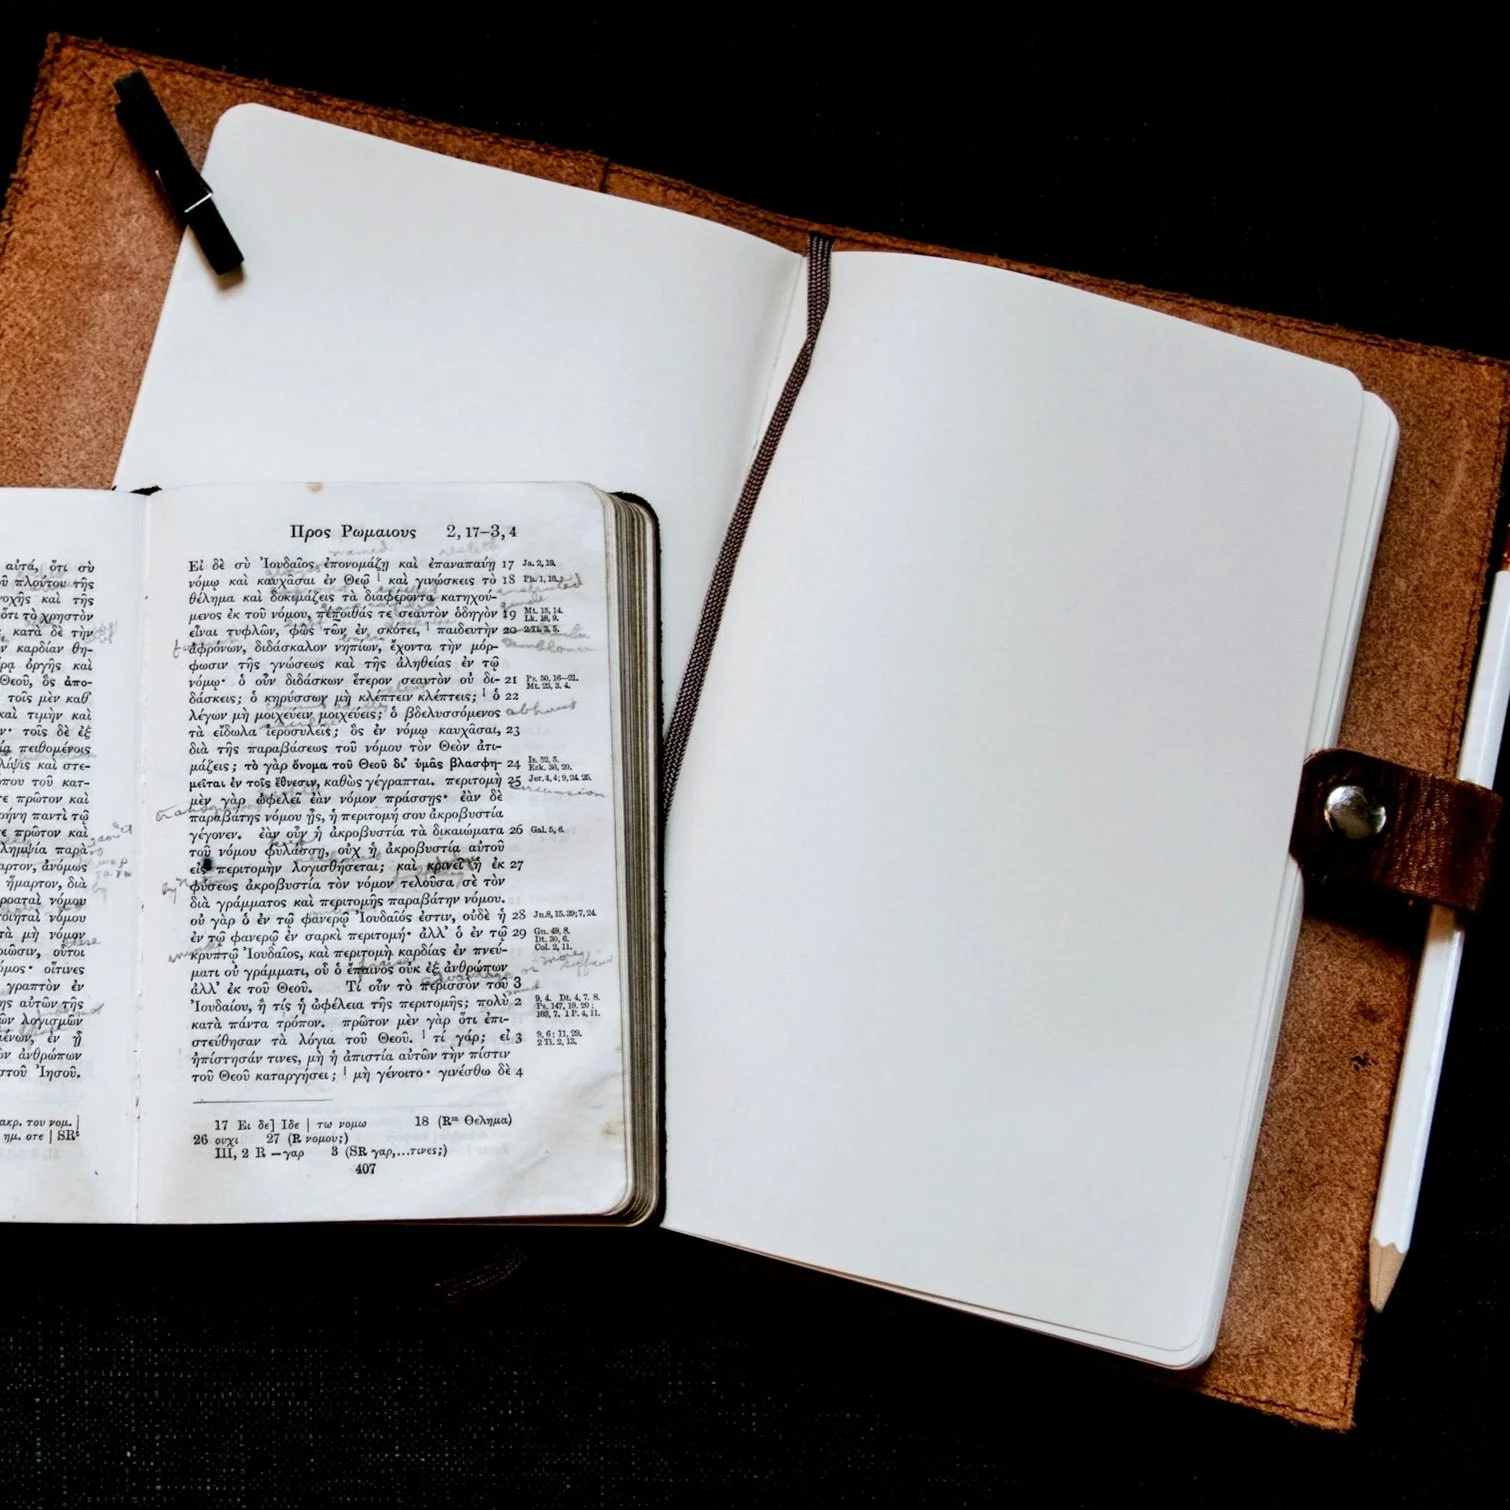 αὐτά, ὅτι σὺ
πλούτου τῆς
καὶ τῆς
ὅτι τὸ χρηστὸν
κατὰ δὲ τὴν
καρδίαν θη-
ὀργῆς καὶ
Θεοῦ, ὃς ἀπο-
τοῖς μὲν καθ’
καὶ τιμὴν καὶ
τοῖς δὲ ἐξ
πειθομένοις
καὶ στε-
τοῦ κατ-
πρῶτον καὶ
παντὶ τῷ
πρῶτον καὶ
παρὰ
ἀνόμως
ἥμαρτον, διὰ
νόμου
νόμου
τὰ μὴ νόμον
οὗτοι
οἵτινες
γραπτὸν ἐν
αὐτῶν τῆς
λογισμῶν
ἐν ᾗ
ἀνθρώπων
Ἰησοῦ.
ακρ. του νομ. |
ημ. οτε | SRᵗ
Προς Ρωμαιους 2, 17—3, 4
Εἰ δὲ σὺ Ἰουδαῖος ἐπονομάζῃ καὶ ἐπαναπαύῃ 17 Ja. 2, 19.
νόμῳ καὶ καυχᾶσαι ἐν Θεῷ ˡ καὶ γινώσκεις τὸ 18 Ph. 1, 10.
θέλημα καὶ δοκιμάζεις τὰ διαφέροντα κατηχού-
μενος ἐκ τοῦ νόμου, πέποιθάς τε σεαυτὸν ὁδηγὸν 19 Mt. 15, 14. Lk. 18, 9.
εἶναι τυφλῶν, φῶς τῶν ἐν σκότει, ˡ παιδευτὴν 20 2 Ti. 3, 5.
ἀφρόνων, διδάσκαλον νηπίων, ἔχοντα τὴν μόρ-
φωσιν τῆς γνώσεως καὶ τῆς ἀληθείας ἐν τῷ
νόμῳ· ὁ οὖν διδάσκων ἕτερον σεαυτὸν οὐ δι- 21 Ps. 50, 16—21. Mt. 23, 3. 4.
δάσκεις; ὁ κηρύσσων μὴ κλέπτειν κλέπτεις; ˡ ὁ 22
λέγων μὴ μοιχεύειν μοιχεύεις; ὁ βδελυσσόμενος abhorrest
τὰ εἴδωλα ἱεροσυλεῖς; ὃς ἐν νόμῳ καυχᾶσαι, 23
διὰ τῆς παραβάσεως τοῦ νόμου τὸν Θεὸν ἀτι-
μάζεις; τὸ γὰρ ὄνομα τοῦ Θεοῦ δι’ ὑμᾶς βλασφη- 24 Is. 52, 5. Ezk. 36, 20.
μεῖται ἐν τοῖς ἔθνεσιν, καθὼς γέγραπται. περιτομὴ 25 Jer. 4, 4; 9, 24. 25.
μὲν γὰρ ὠφελεῖ ἐὰν νόμον πράσσῃς· ἐὰν δὲ
παραβάτης νόμου ᾖς, ἡ περιτομή σου ἀκροβυστία
γέγονεν. ἐὰν οὖν ἡ ἀκροβυστία τὰ δικαιώματα 26 Gal. 5, 6.
τοῦ νόμου φυλάσσῃ, οὐχ ἡ ἀκροβυστία αὐτοῦ
εἰς περιτομὴν λογισθήσεται; καὶ κρινεῖ ἡ ἐκ 27
φύσεως ἀκροβυστία τὸν νόμον τελοῦσα σὲ τὸν
διὰ γράμματος καὶ περιτομῆς παραβάτην νόμου.
οὐ γὰρ ὁ ἐν τῷ φανερῷ Ἰουδαῖός ἐστιν, οὐδὲ ἡ 28 Jn. 8, 15. 39; 7, 24.
ἐν τῷ φανερῷ ἐν σαρκὶ περιτομή· ἀλλ’ ὁ ἐν τῷ 29 Gn. 49, 8. Dt. 30, 6. Col. 2, 11.
κρυπτῷ Ἰουδαῖος, καὶ περιτομὴ καρδίας ἐν πνεύ-
ματι οὐ γράμματι, οὗ ὁ ἔπαινος οὐκ ἐξ ἀνθρώπων
ἀλλ’ ἐκ τοῦ Θεοῦ. Τί οὖν τὸ περισσὸν τοῦ 3
Ἰουδαίου, ἢ τίς ἡ ὠφέλεια τῆς περιτομῆς; πολὺ 2 9, 4. Dt. 4, 7. 8. Ps. 147, 19. 20; 103, 7. 1 P. 4, 11.
κατὰ πάντα τρόπον. πρῶτον μὲν γὰρ ὅτι ἐπι-
στεύθησαν τὰ λόγια τοῦ Θεοῦ. ˡ τί γάρ; εἰ 3 9, 6; 11, 29. 2 Ti. 2, 13.
ἠπίστησάν τινες, μὴ ἡ ἀπιστία αὐτῶν τὴν πίστιν
τοῦ Θεοῦ καταργήσει; ˡ μὴ γένοιτο· γινέσθω δὲ 4
17 Ει δε] Ιδε | τω νομω 18 (Rᵐ Θελημα)
26 ουχι 27 (R νομου;)
III, 2 R —γαρ 3 (SR γαρ,...τινες;)
407